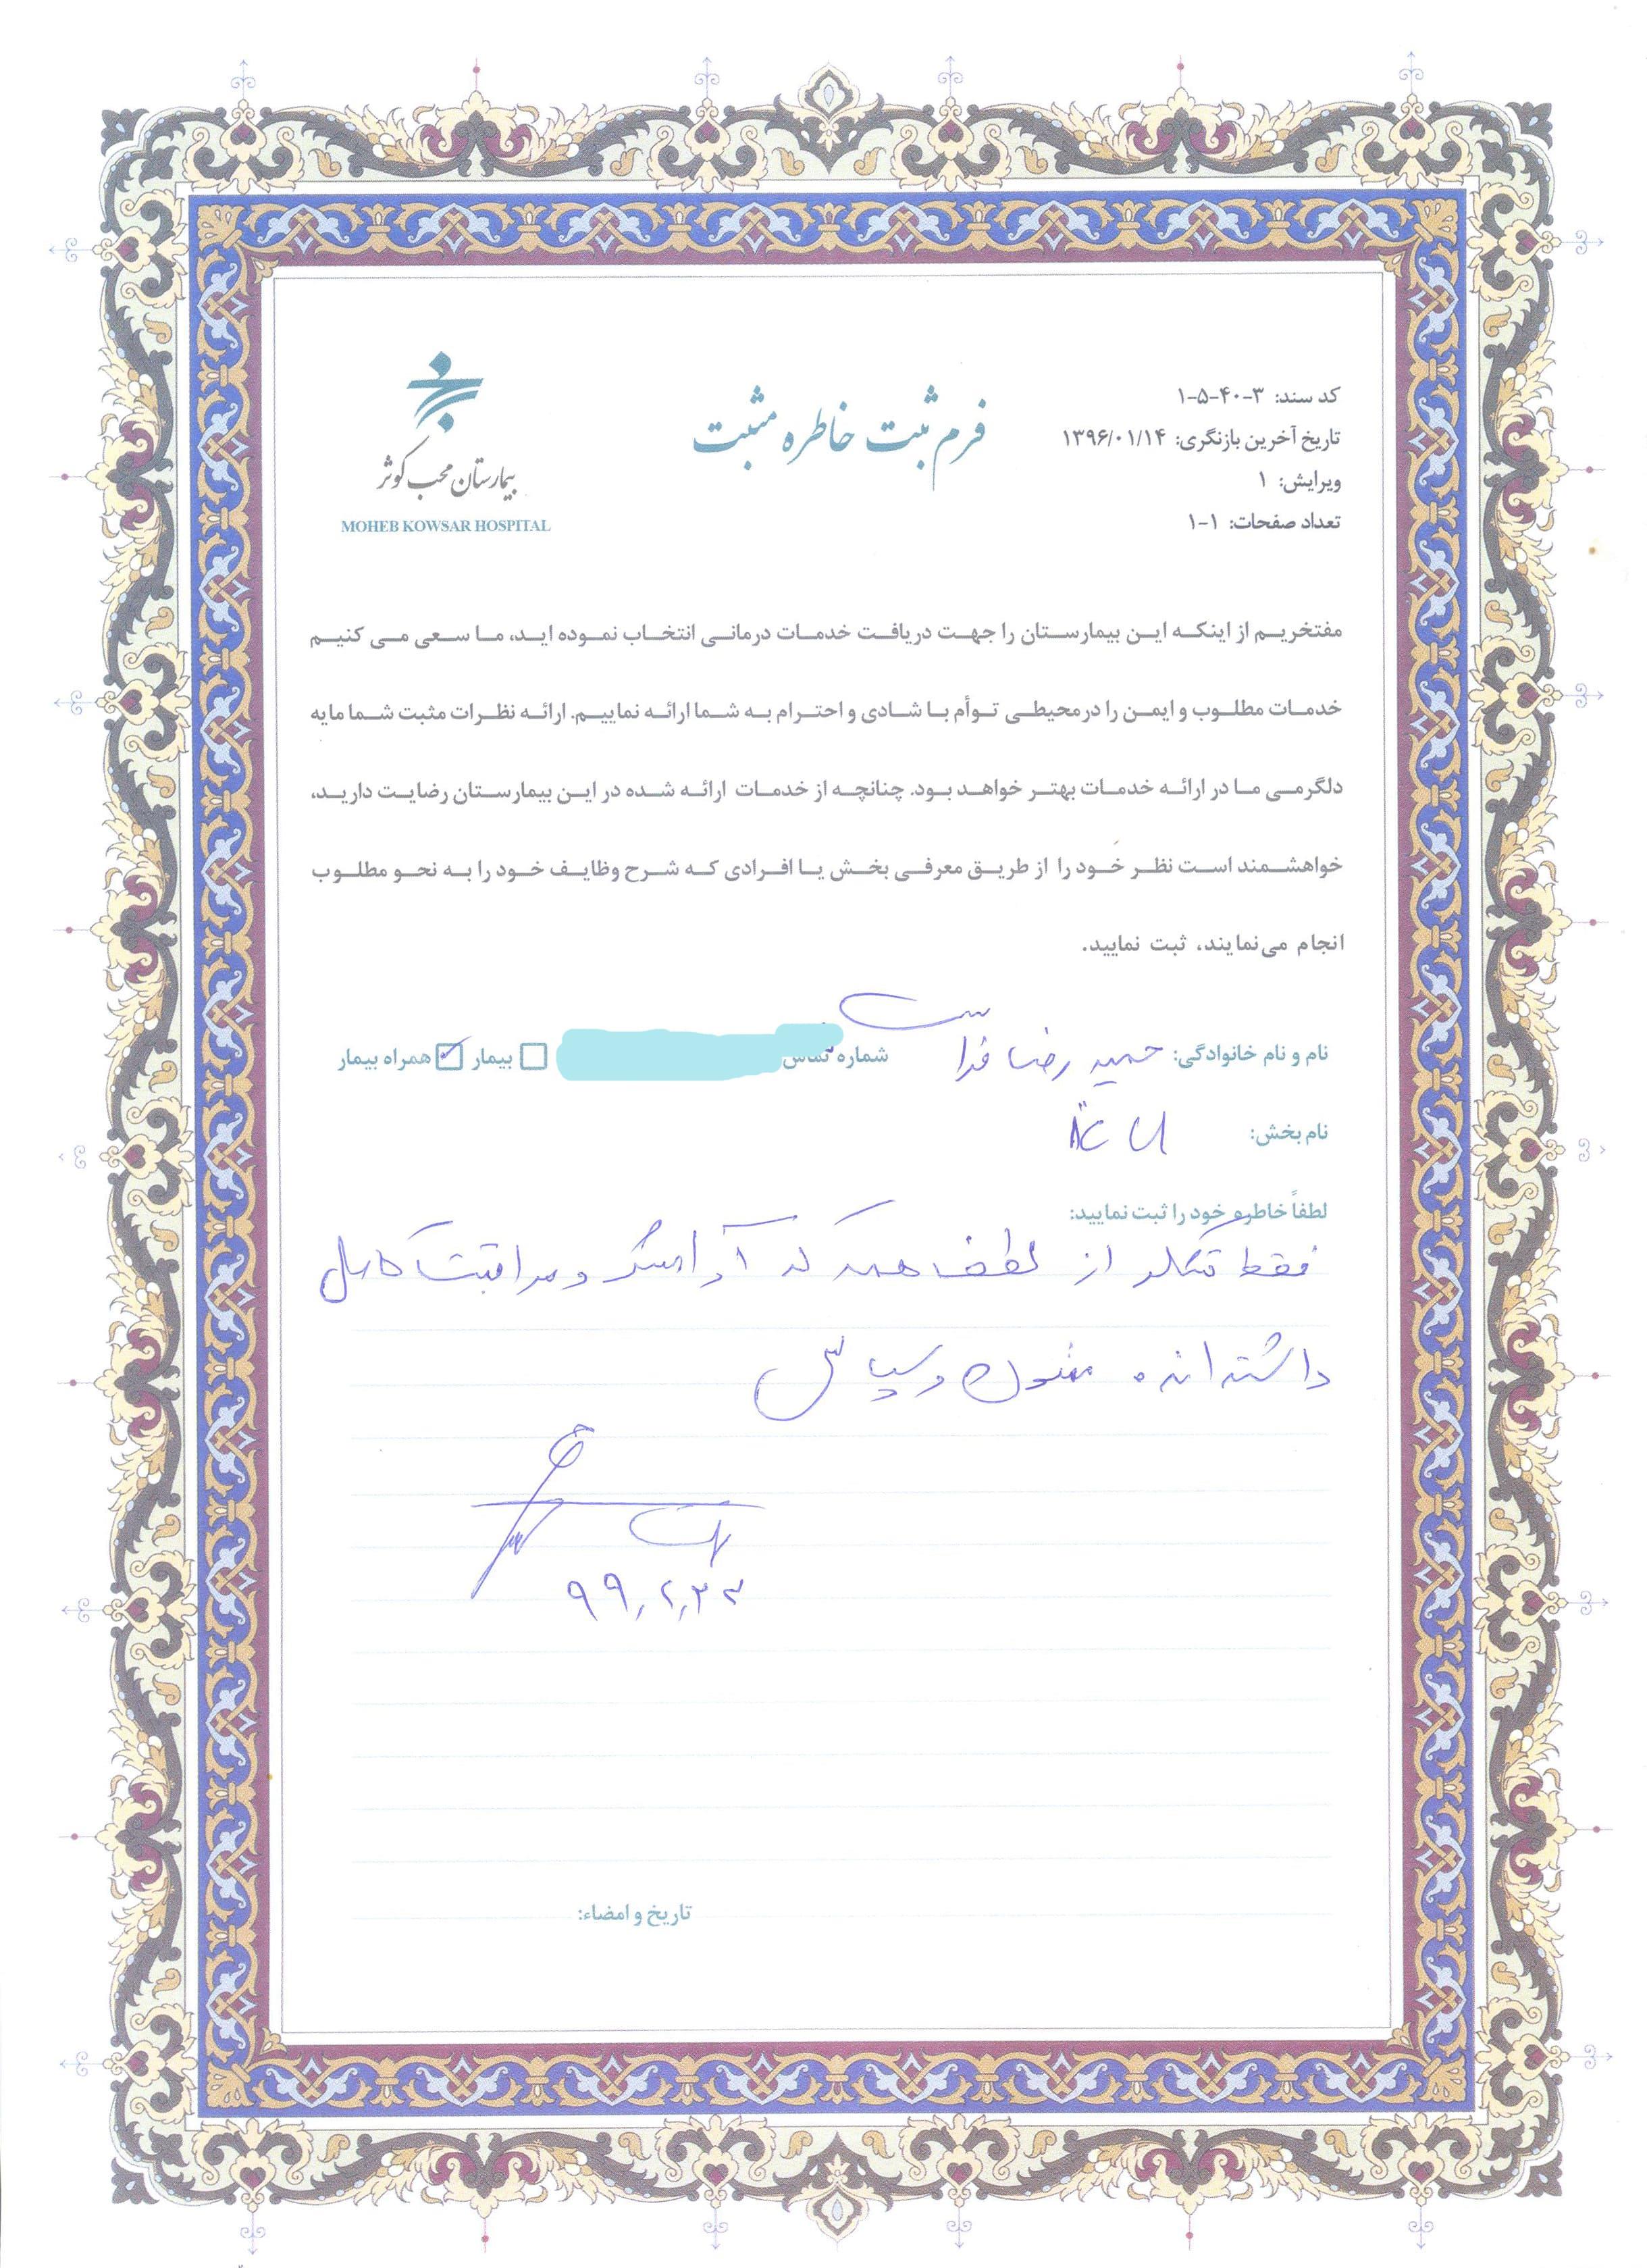 کد سند: ۳-۴۰-۵-۱
تاریخ آخرین بازنگری: ۱۳۹۶/۰۱/۱۴
ویرایش: ۱
تعداد صفحات: ۱-۱
فرم ثبت خاطره مثبت
بیمارستان محب کوثر
MOHEB KOWSAR HOSPITAL
مفتخریم از اینکه این بیمارستان را جهت دریافت خدمات درمانی انتخاب نموده اید، ما سعی می کنیم
خدمات مطلوب و ایمن را در محیطی توأم با شادی و احترام به شما ارائه نماییم. ارائه نظرات مثبت شما مایه
دلگرمی ما در ارائه خدمات بهتر خواهد بود. چنانچه از خدمات ارائه شده در این بیمارستان رضایت دارید،
خواهشمند است نظر خود را از طریق معرفی بخش یا افرادی که شرح وظایف خود را به نحو مطلوب
انجام می‌نمایند، ثبت نمایید.
نام و نام خانوادگی: حمید رضا شماره تماس بیمار همراه بیمار
نام بخش: ICU
لطفاً خاطره خود را ثبت نمایید:
فقط تشکر از لطف همه که و مراقبت کامل
داشته اند ممنون و سپاس
۹۹,۲,۲۳
تاریخ و امضاء: